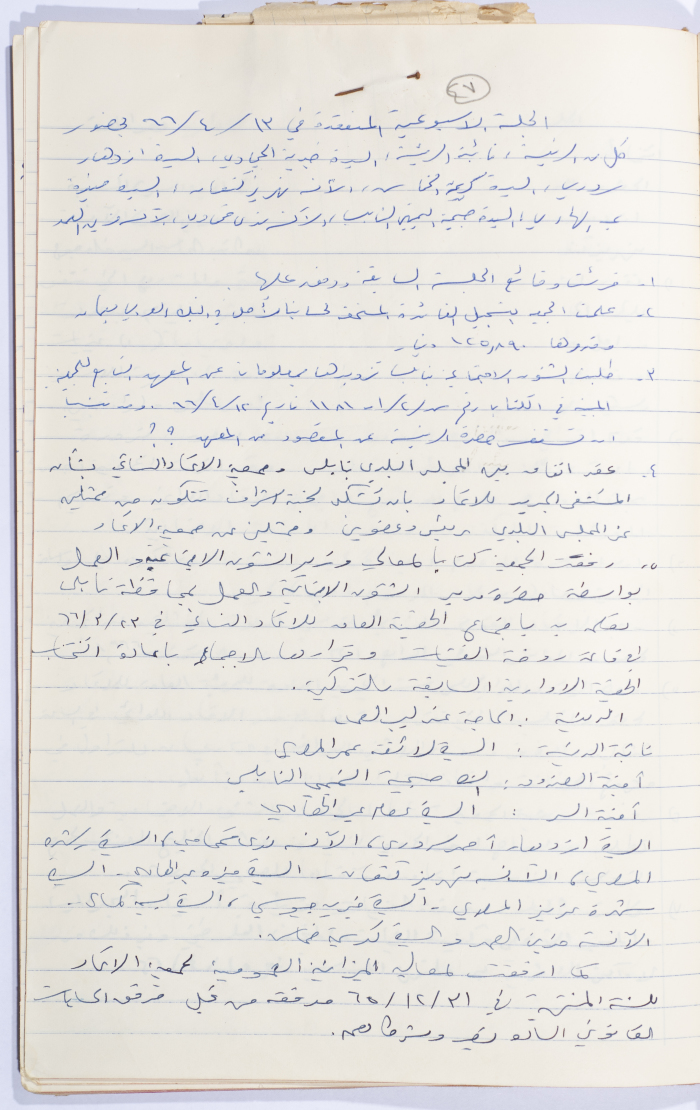 ٤٧
الجلسة الاسبوعية المنعقدة في ١٣/٤/٦٦ بحضور
كل من الرئيسة، نائبة الرئيسة، السيدة السيدة ازدهار
سروري، السيدة كريمة، الآنسة نهريز كنعان، السيدة
عبد الهادي، السيدة صبحية التميمي النابلسي، الآنسة الآنسة حزين الصمد
١- قرئت وقائع الجلسة السابقة ووفق عليها.
٢- علمت الجمعية بتسجيل الفائدة المستحقة لحسابنا في البنك العربي
وقدرها ١٢٥٫٨٩٠ دينار
٣- طلبت الشئون الاجتماعية تزويدها بمعلومات عن المعهد التابع للجمعية
في الكتاب رقم ١١٨١ تاريخ ١٢/٤/٦٦. وقد
ان تستفسر حضرة الرئيسة عن المقصود من المعهد ؟؟
٤- عقد اتفاق بين المجلس البلدي بنابلس وجمعية الاتحاد النسائي بشأن
المستشفى الجديد للاتحاد بان تشكل لجنة اشراف تتكون من ممثلين
عن المجلس البلدي وعضوين وممثلين عن جمعية الاتحاد
٥- رفعت الجمعية كتابا لمعالي وزير الشئون الاجتماعية والعمل
بواسطة حضرة مدير الشئون الاجتماعية والعمل بمحافظة نابلس
تعلمه به باجتماع الهيئة العامة للاتحاد النسائي في ٢٣/٣/٦٦
في قاعة روضة الفتيات وقرارها بالاجماع باعادة انتخاب
الهيئة الادارية السابقة بالتزكية.
الرئيسة : الحاجة عندليب العمد
نائبة الرئيسة : السيدة لائقة عمر المصري
أمينة الصندوق : السيدة صبحية التميمي النابلسي
أمينة السر : السيدة عبد الهادي
السيدة ازدهار أحمد سروري، الآنسة، السيدة
المصري، الآنسة نهريز كنعان - السيدة عبد الهادي - السيدة
عزيز المصري - السيدة جيوسي، السيدة كمال -
الآنسة حزين الصمد والسيدة كريمة
كما ارفقت لمعاليه الميزانية العمومية لجمعية الاتحاد
للسنة المنتهية في ٣١/١٢/٦٥ مدققة من قبل مدقق الحسابات
القانوني وشركاهم.